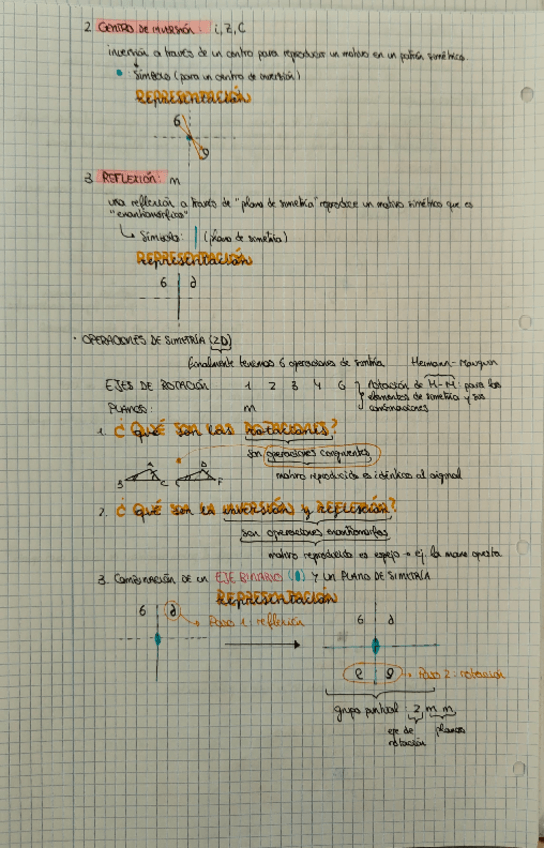 2. CENTRO DE INVERSIÓN: i, Z, C
inversión a través de un centro para reproducir un motivo en un patrón simétrico.
: Símbolo (para un centro de inversión)
REPRESENTACIÓN
6
3. REFLEXIÓN: m
una reflexión a través de "plano de simetría" reproduce un motivo simétrico que es
"enantiomórfico"
Símbolo: | (plano de simetría)
REPRESENTACIÓN
6
· OPERACIONES DE SIMETRÍA (2D)
finalmente tenemos 6 operaciones de simtría Hermann-Mauguin
EJES DE ROTACIÓN 1 2 3 4 6 notación de H-M: para los
elementos de simetría y sus
combinaciones
PLANOS: m
1. ¿QUÉ SON LAS ROTACIONES?
son operaciones congruentes
motivo reproducido es idéntico al original
A B C D F
2. ¿QUÉ SON LA INVERSIÓN y REFLEXIÓN?
son operaciones enantiomorfas
motivo reproducido es espejo → ej. la mano opuesta.
3. COMBINACIÓN DE UN EJE BINARIO ( ) Y UN PLANO DE SIMETRÍA
REPRESENTACIÓN
6
Paso 1: reflexión
6
Paso 2: rotación
grupo puntual: 2 m m
eje de rotación planos